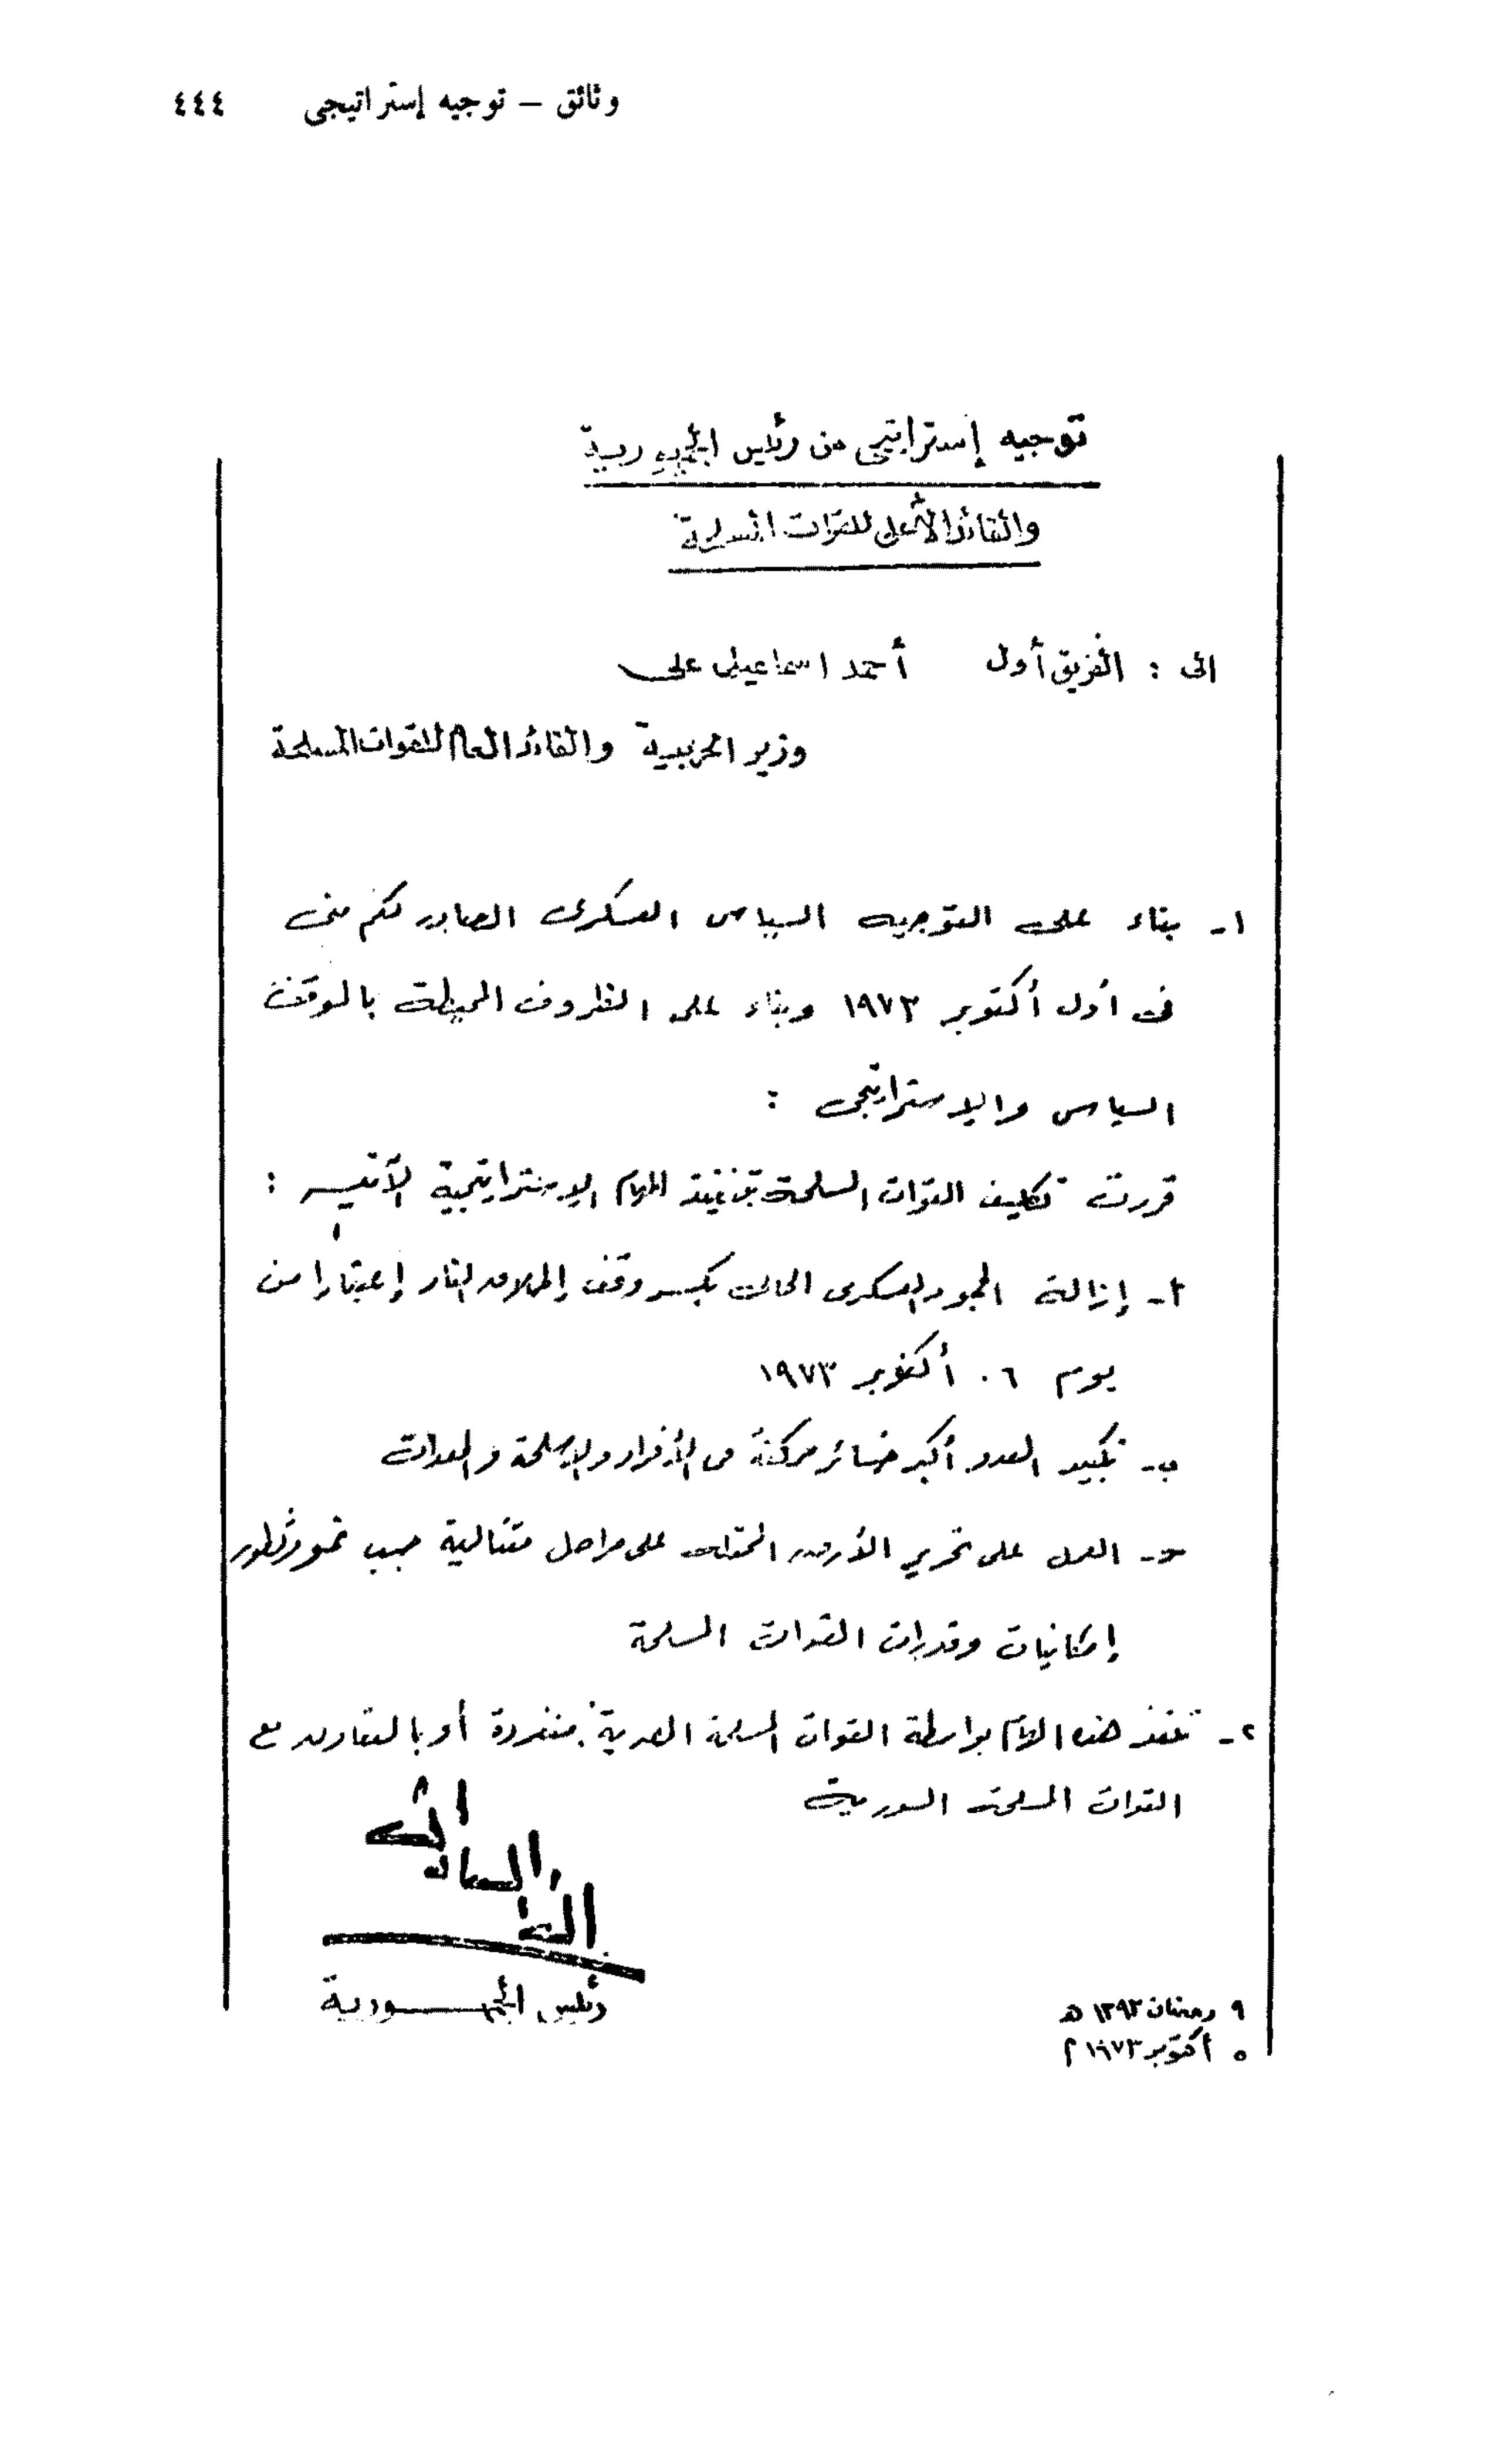 وثائق – توجيه إستراتيجى ٤٤٤
توجيه إستراتيجى من رئيس الجمهورية
والقائد الأعلى للقوات المسلحة
الى : الفريق أول أحمد اسماعيل على
وزير الحربية والقائد العام للقوات المسلحة
١- بناء على التوجيه السياسى العسكرى الصادر لكم منى
فى أول أكتوبر ١٩٧٣ وبناء على الظروف المحيطة بالموقف
السياسى والاستراتيجى :
قررت تكليف القوات المسلحة بتنفيذ المهام الاستراتيجية الآتية :
أ- إزالة الجمود العسكرى الحالى بكسر وقف إطلاق النار إعتبارا من
يوم ٠٦ أكتوبر ١٩٧٣
ب- تكبيد العدو أكبر خسائر ممكنة من الأفراد والاسلحة والمعدات
حـ- العمل على تحرير الأرض المحتلة على مراحل متتالية حسب نمو وتطور
إمكانيات وقدرات القوات المسلحة
٢- تنفذ هذه المهام بواسطة القوات المسلحة المصرية منفردة أو بالتعاون مع
القوات المسلحة السورية
أنور السادات
رئيس الجمهورية
٩ رمضان ١٣٩٣ هـ
٥ أكتوبر ١٩٧٣ م